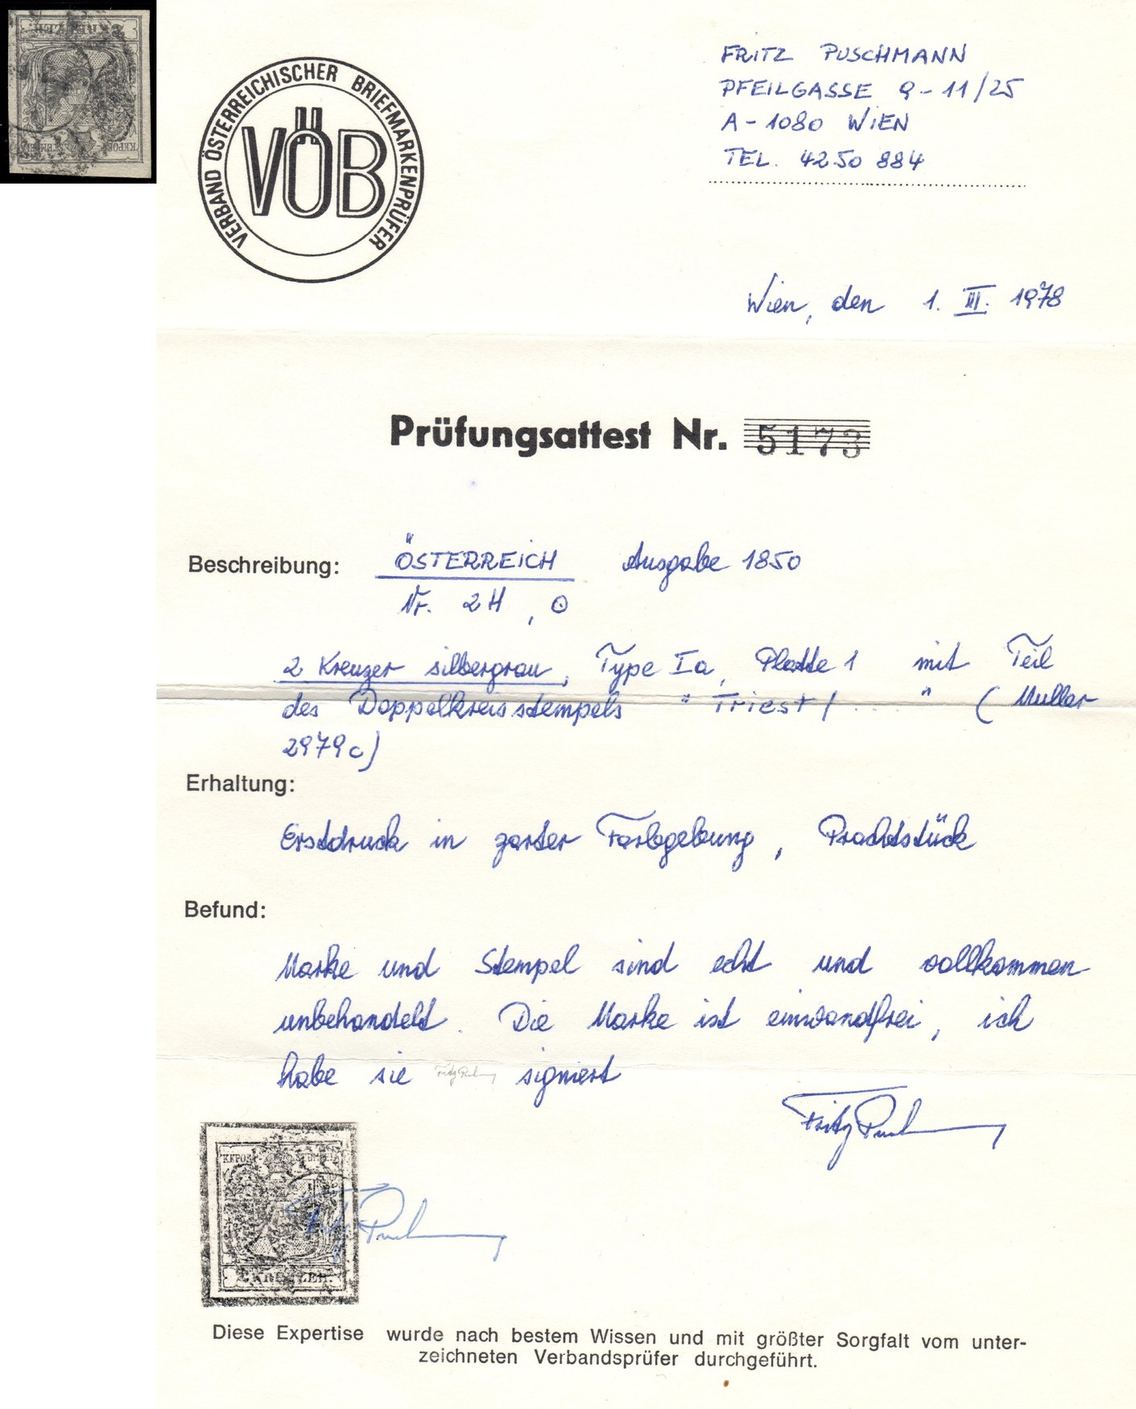 FRITZ PUSCHMANN
PFEILGASSE 9-11/25
A-1080 WIEN
TEL. 4250 884
VERBAND ÖSTERREICHISCHER BRIEFMARKENPRÜFER
VÖB
Wien, den 1. III. 1978
Prüfungsattest Nr. 5173
Beschreibung: ÖSTERREICH Ausgabe 1850
Nr. 2H, ⊙
2 Kreuzer silbergrau, Type Ia, Platte 1 mit Teil
des Doppelkreisstempels "Triest/...." (Müller
2979c)
Erhaltung:
Erstdruck in zarter Farbgebung, Prachtstück
Befund:
Marke und Stempel sind echt und vollkommen
unbehandelt. Die Marke ist einwandfrei, ich
habe sie signiert
Fritz Puschmann
2 KREUZER
Diese Expertise wurde nach bestem Wissen und mit größter Sorgfalt vom unter-
zeichneten Verbandsprüfer durchgeführt.